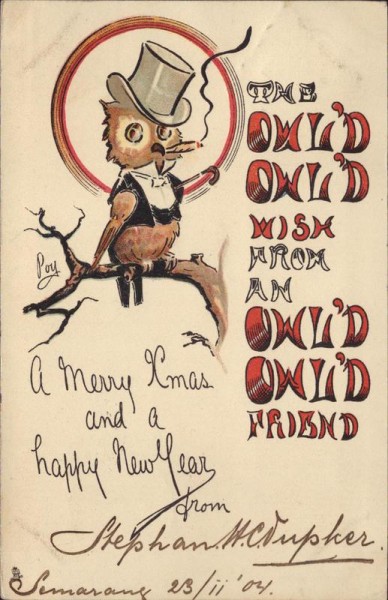 THE
OWL'D
OWL'D
WISH
FROM
AN
OWL'D
OWL'D
FRIEND
Poy.
A Merry Xmas
and a
happy New Year
from
Stephan. H. C. Dupker.
Semarang 23/11 '04.